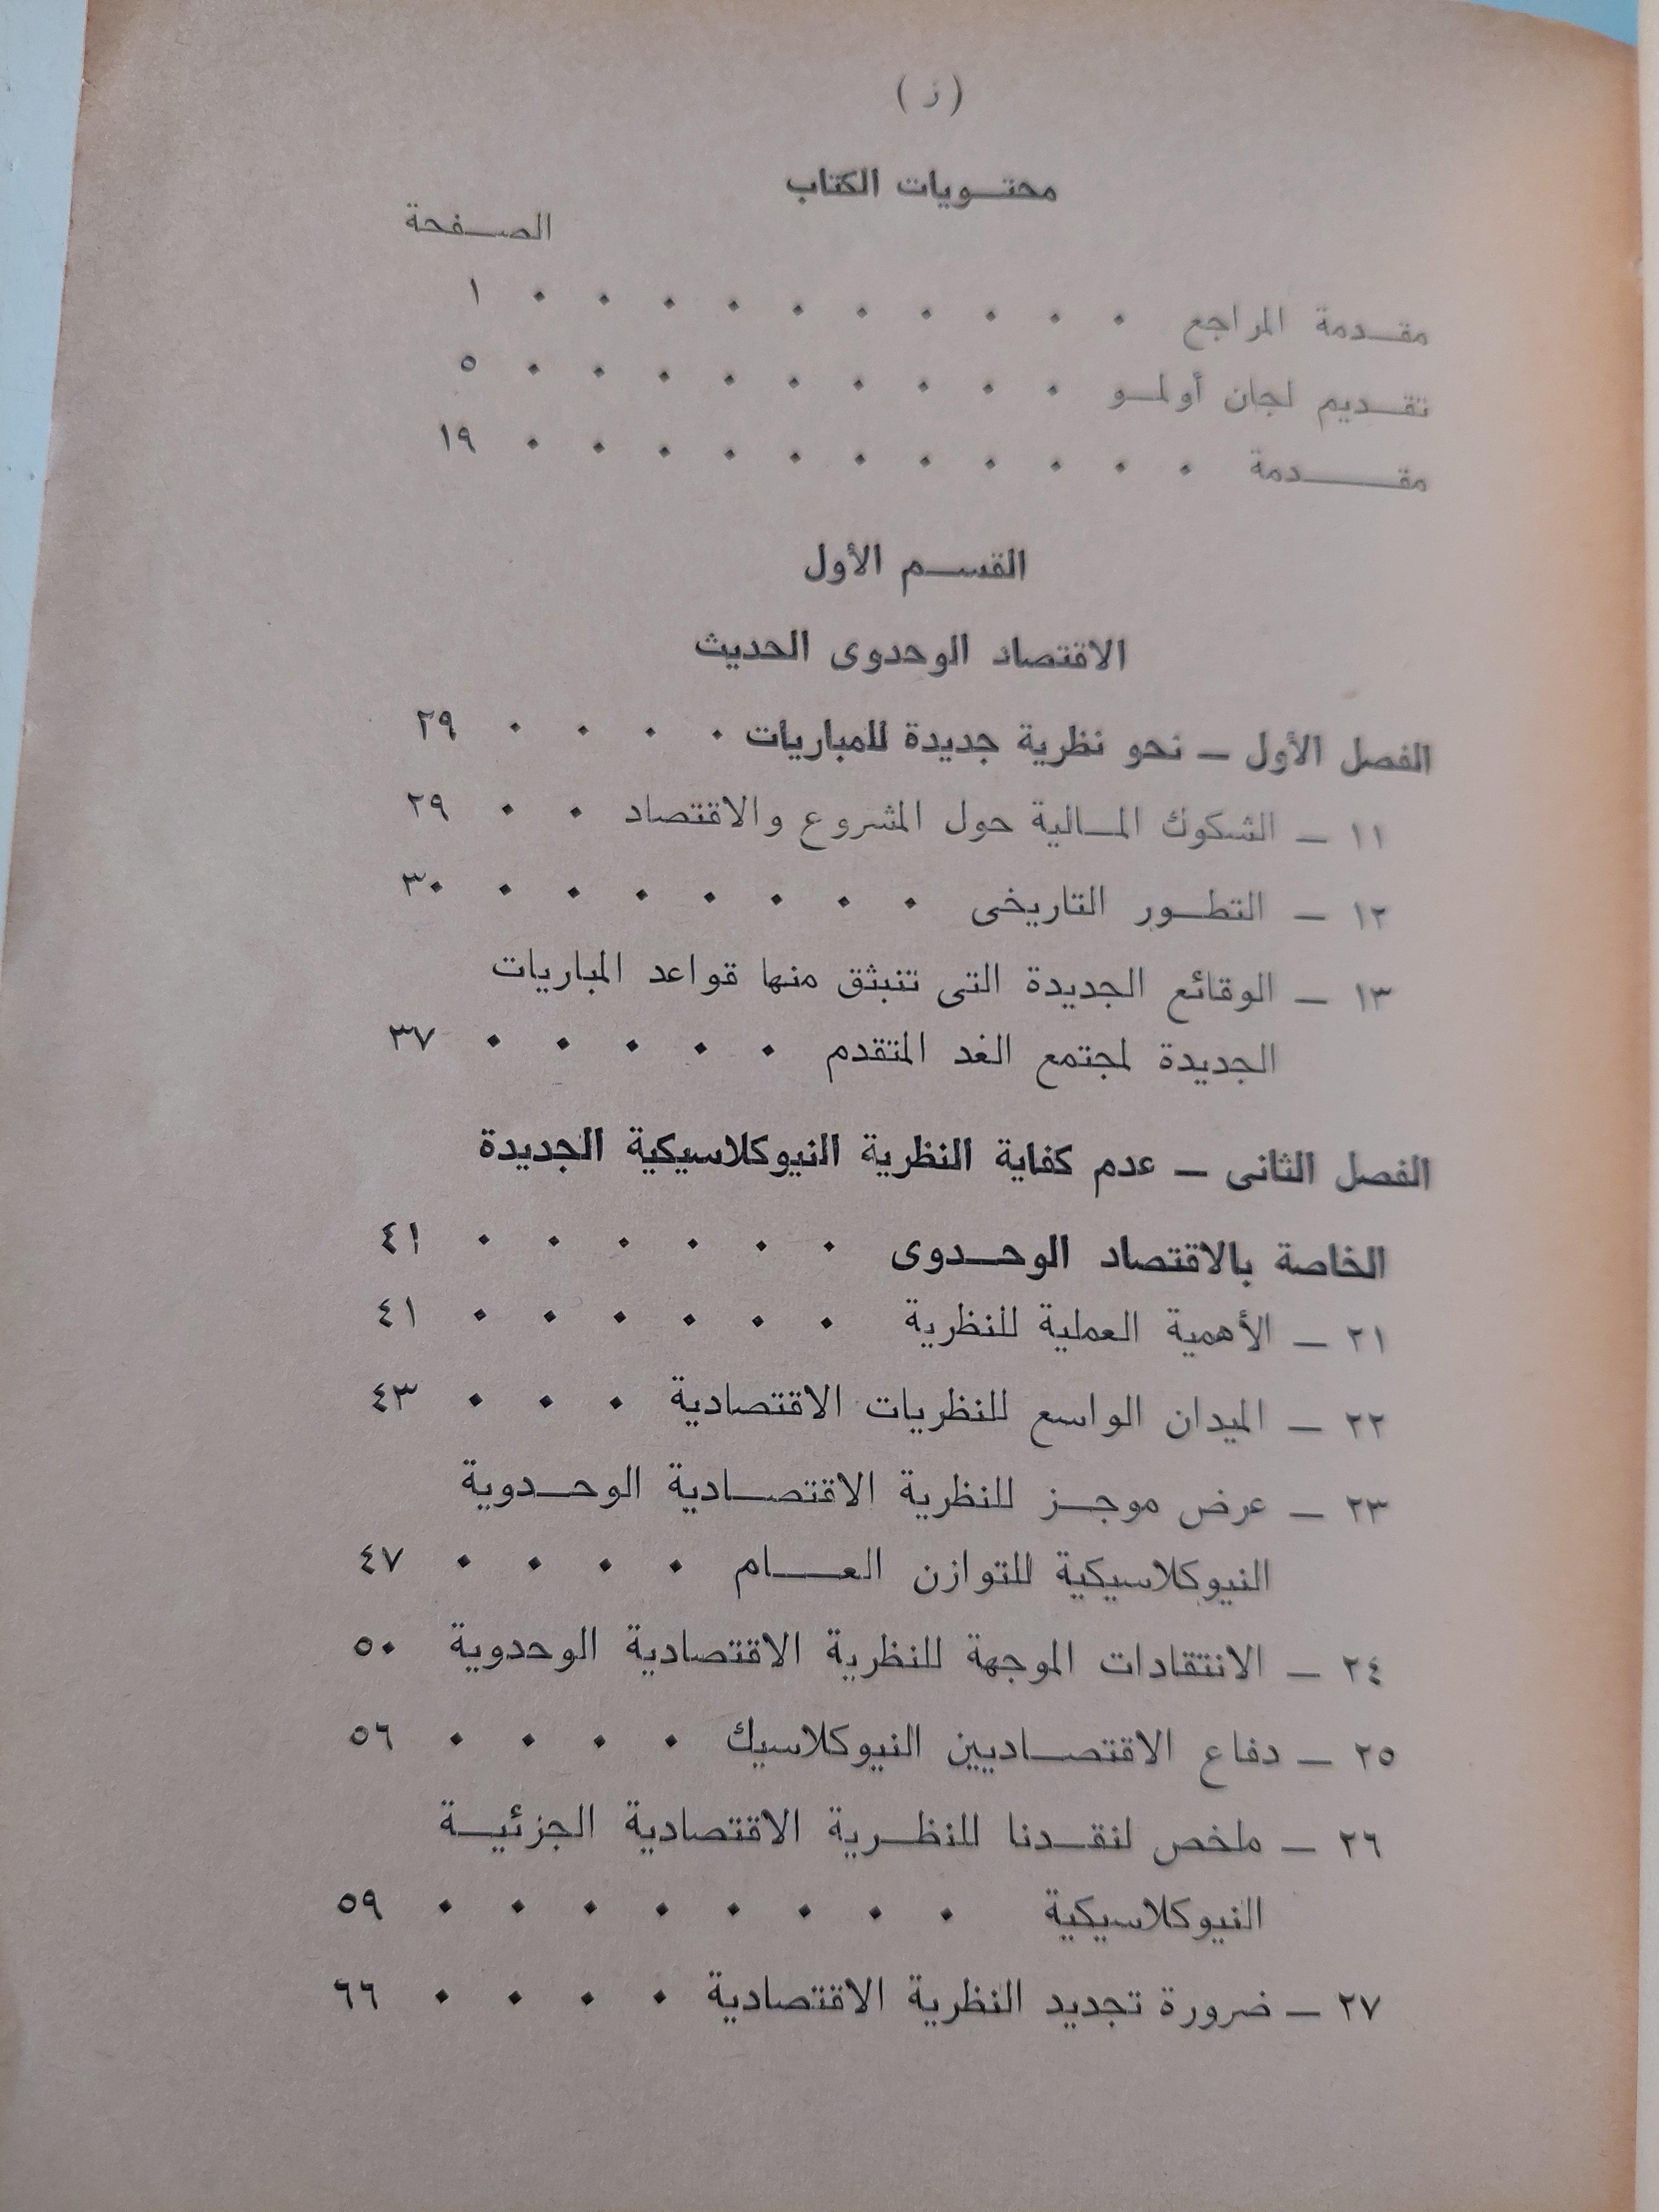 ( ز )
محتويات الكتاب
الصفحة
مقدمة المراجع . . . . . . . . . . ١
تقديم لجان أولمو . . . . . . . . . ٥
مقدمة . . . . . . . . . . . ١٩
القسم الأول
الاقتصاد الوحدوى الحديث
الفصل الأول — نحو نظرية جديدة للمباريات . . . . ٢٩
١١ — الشكوك المالية حول المشروع والاقتصاد . . ٢٩
١٢ — التطور التاريخى . . . . . . . ٣٠
١٣ — الوقائع الجديدة التى تنبثق منها قواعد المباريات
الجديدة لمجتمع الغد المتقدم . . . . . ٣٧
الفصل الثانى — عدم كفاية النظرية النيوكلاسيكية الجديدة
الخاصة بالاقتصاد الوحدوى . . . . . . ٤١
٢١ — الأهمية العملية للنظرية . . . . . . ٤١
٢٢ — الميدان الواسع للنظريات الاقتصادية . . . ٤٣
٢٣ — عرض موجز للنظرية الاقتصادية الوحدوية
النيوكلاسيكية للتوازن العام . . . . ٤٧
٢٤ — الانتقادات الموجهة للنظرية الاقتصادية الوحدوية ٥٠
٢٥ — دفاع الاقتصاديين النيوكلاسيك . . . . ٥٦
٢٦ — ملخص لنقدنا للنظرية الاقتصادية الجزئية
النيوكلاسيكية . . . . . . . . ٥٩
٢٧ — ضرورة تجديد النظرية الاقتصادية . . . . ٦٦